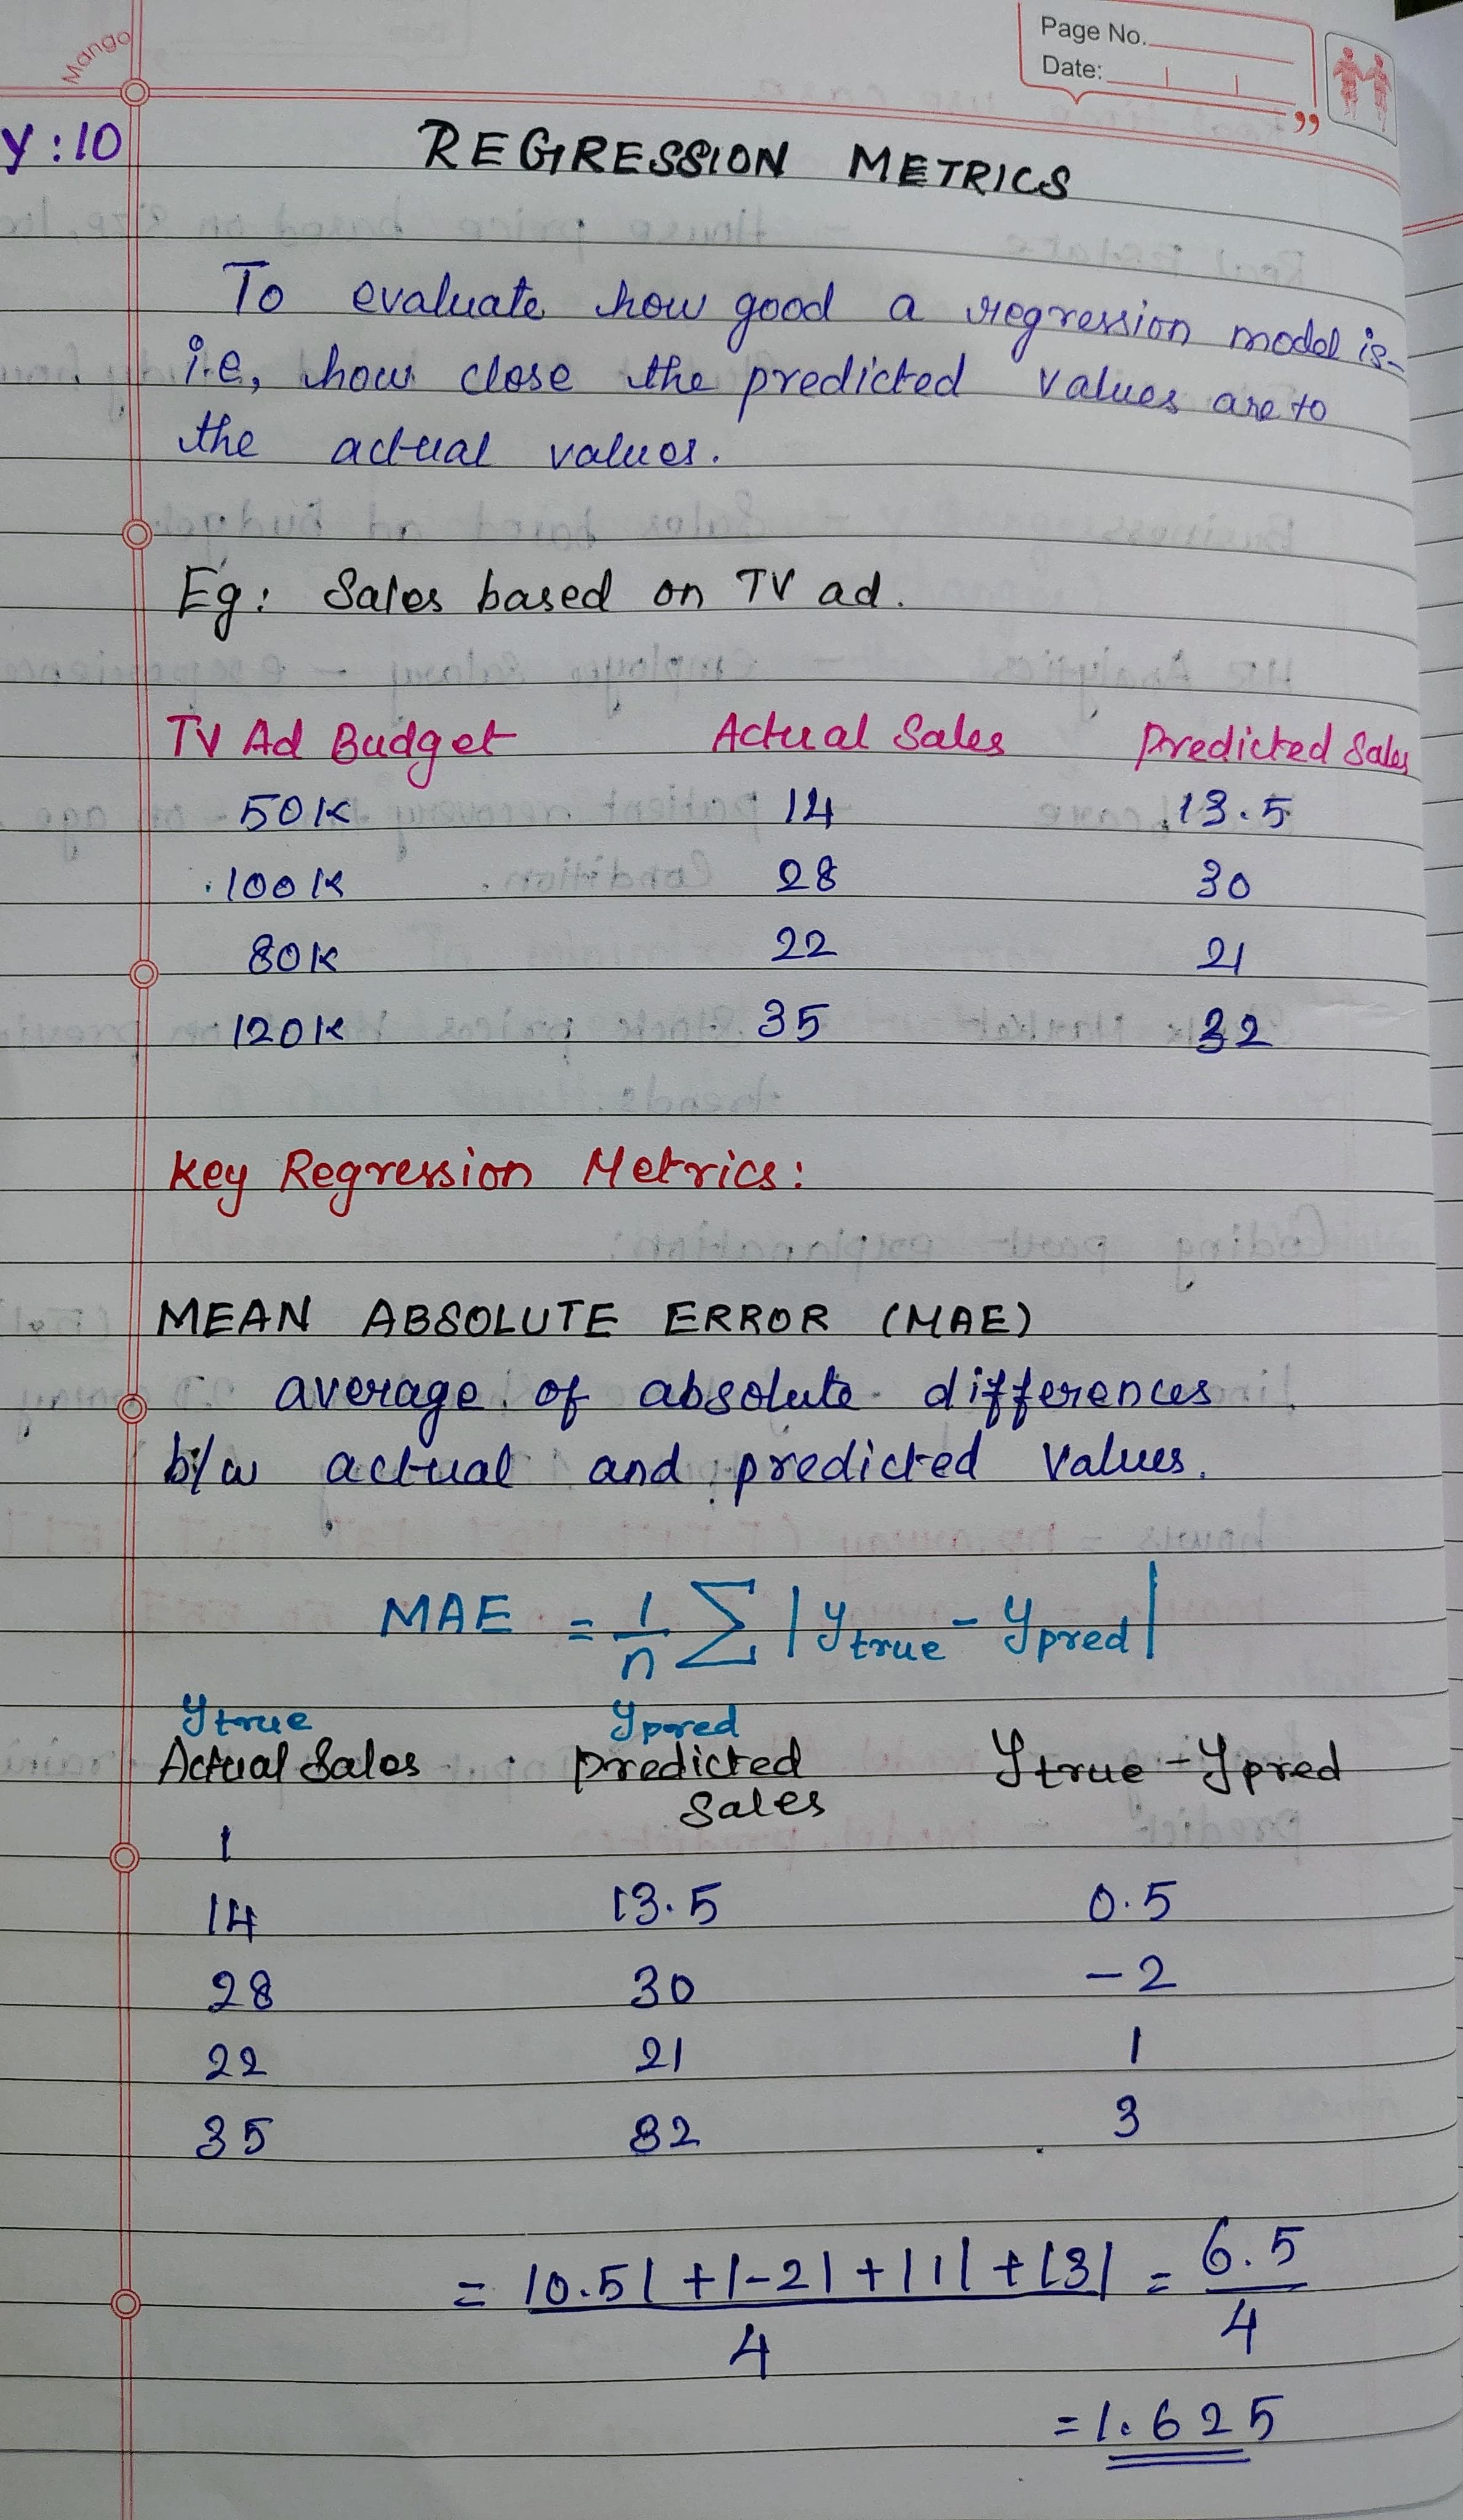 Mango
Page No.
Date:
y : 10
REGRESSION METRICS
To evaluate how good a regression model is-
i.e, how close the predicted values are to
the actual values.
Eg: Sales based on TV ad.
TV Ad Budget Actual Sales Predicted Sales
50K 14 13.5
100K 28 30
80K 22 21
120K 35 32
Key Regression Metrics:
MEAN ABSOLUTE ERROR (MAE)
average of absolute differences
b/w actual and predicted values.
MAE = 1/n ∑ |y true - y pred|
y true y pred
Actual Sales predicted y true - y pred
Sales
1
14 13.5 0.5
28 30 -2
22 21 1
35 32 3
= |0.5| + |-2| + |1| + |3| / 4 = 6.5 / 4
= 1.625